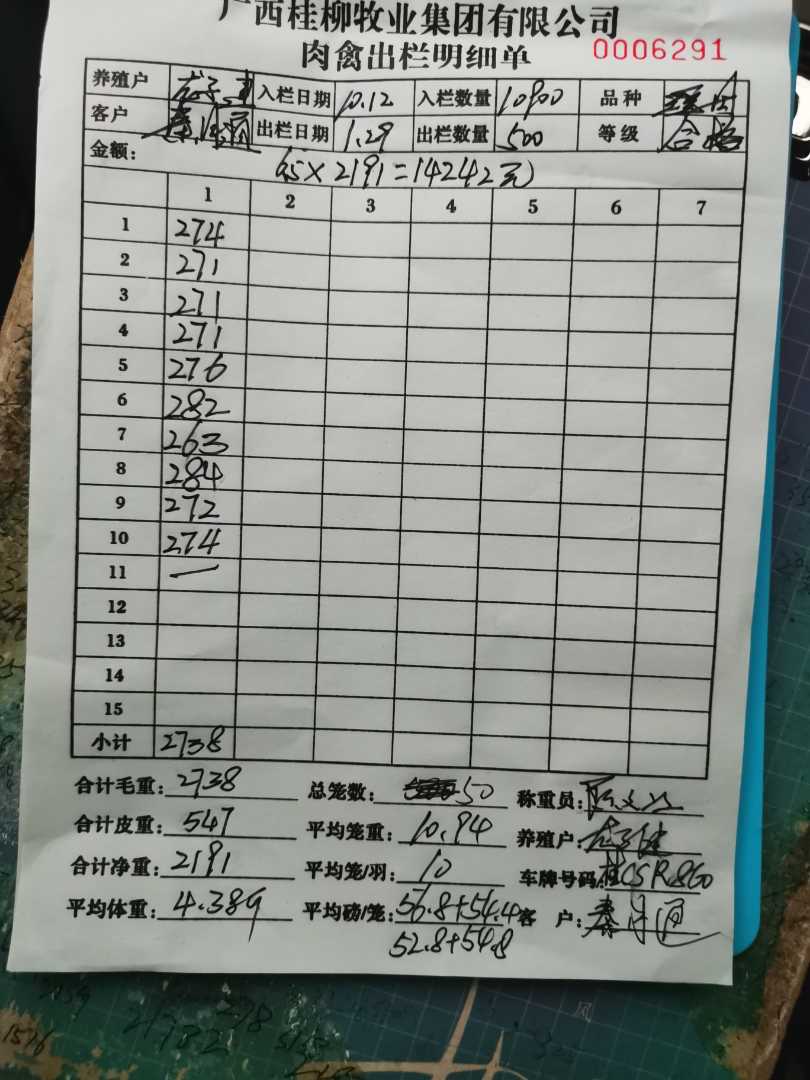 广西桂柳牧业集团有限公司
肉禽出栏明细单 0006291
养殖户 入栏日期 10.12 入栏数量 10900 品种
客户 秦月通 出栏日期 1.29 出栏数量 500 等级 合格
金额: 6.5×2191=14242元
1 2 3 4 5 6 7
1 274
2 271
3 271
4 271
5 276
6 282
7 263
8 284
9 272
10 274
11 —
12
13
14
15
小计 2738
合计毛重: 2738 总笼数: 50 称重员:
合计皮重: 547 平均笼重: 10.94 养殖户:
合计净重: 2191 平均笼/羽: 10 车牌号码: 桂CSR860
平均体重: 4.389 平均磅/笼: 56.8+54.4 客 户: 秦月通
52.8+54.8